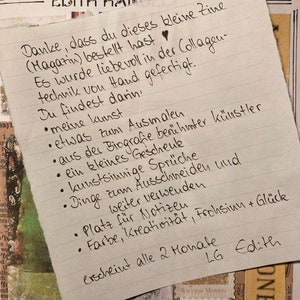 EDITH
Danke, dass du dieses kleine Zine
(Magazin) bestellt hast ♥
Es wurde liebevoll in der Collagen-
technik von Hand gefertigt.
Du findest darin:
• meine Kunst
• etwas zum Ausmalen
• aus der Biografie berühmter Künstler
• ein kleines Geschenk
• kunstsinnige Sprüche
• Dinge zum Ausschneiden und
weiter verwenden
• Platz für Notizen
• Farbe, Kreativität, Frohsinn + Glück
erscheint alle 2 Monate
LG Edith